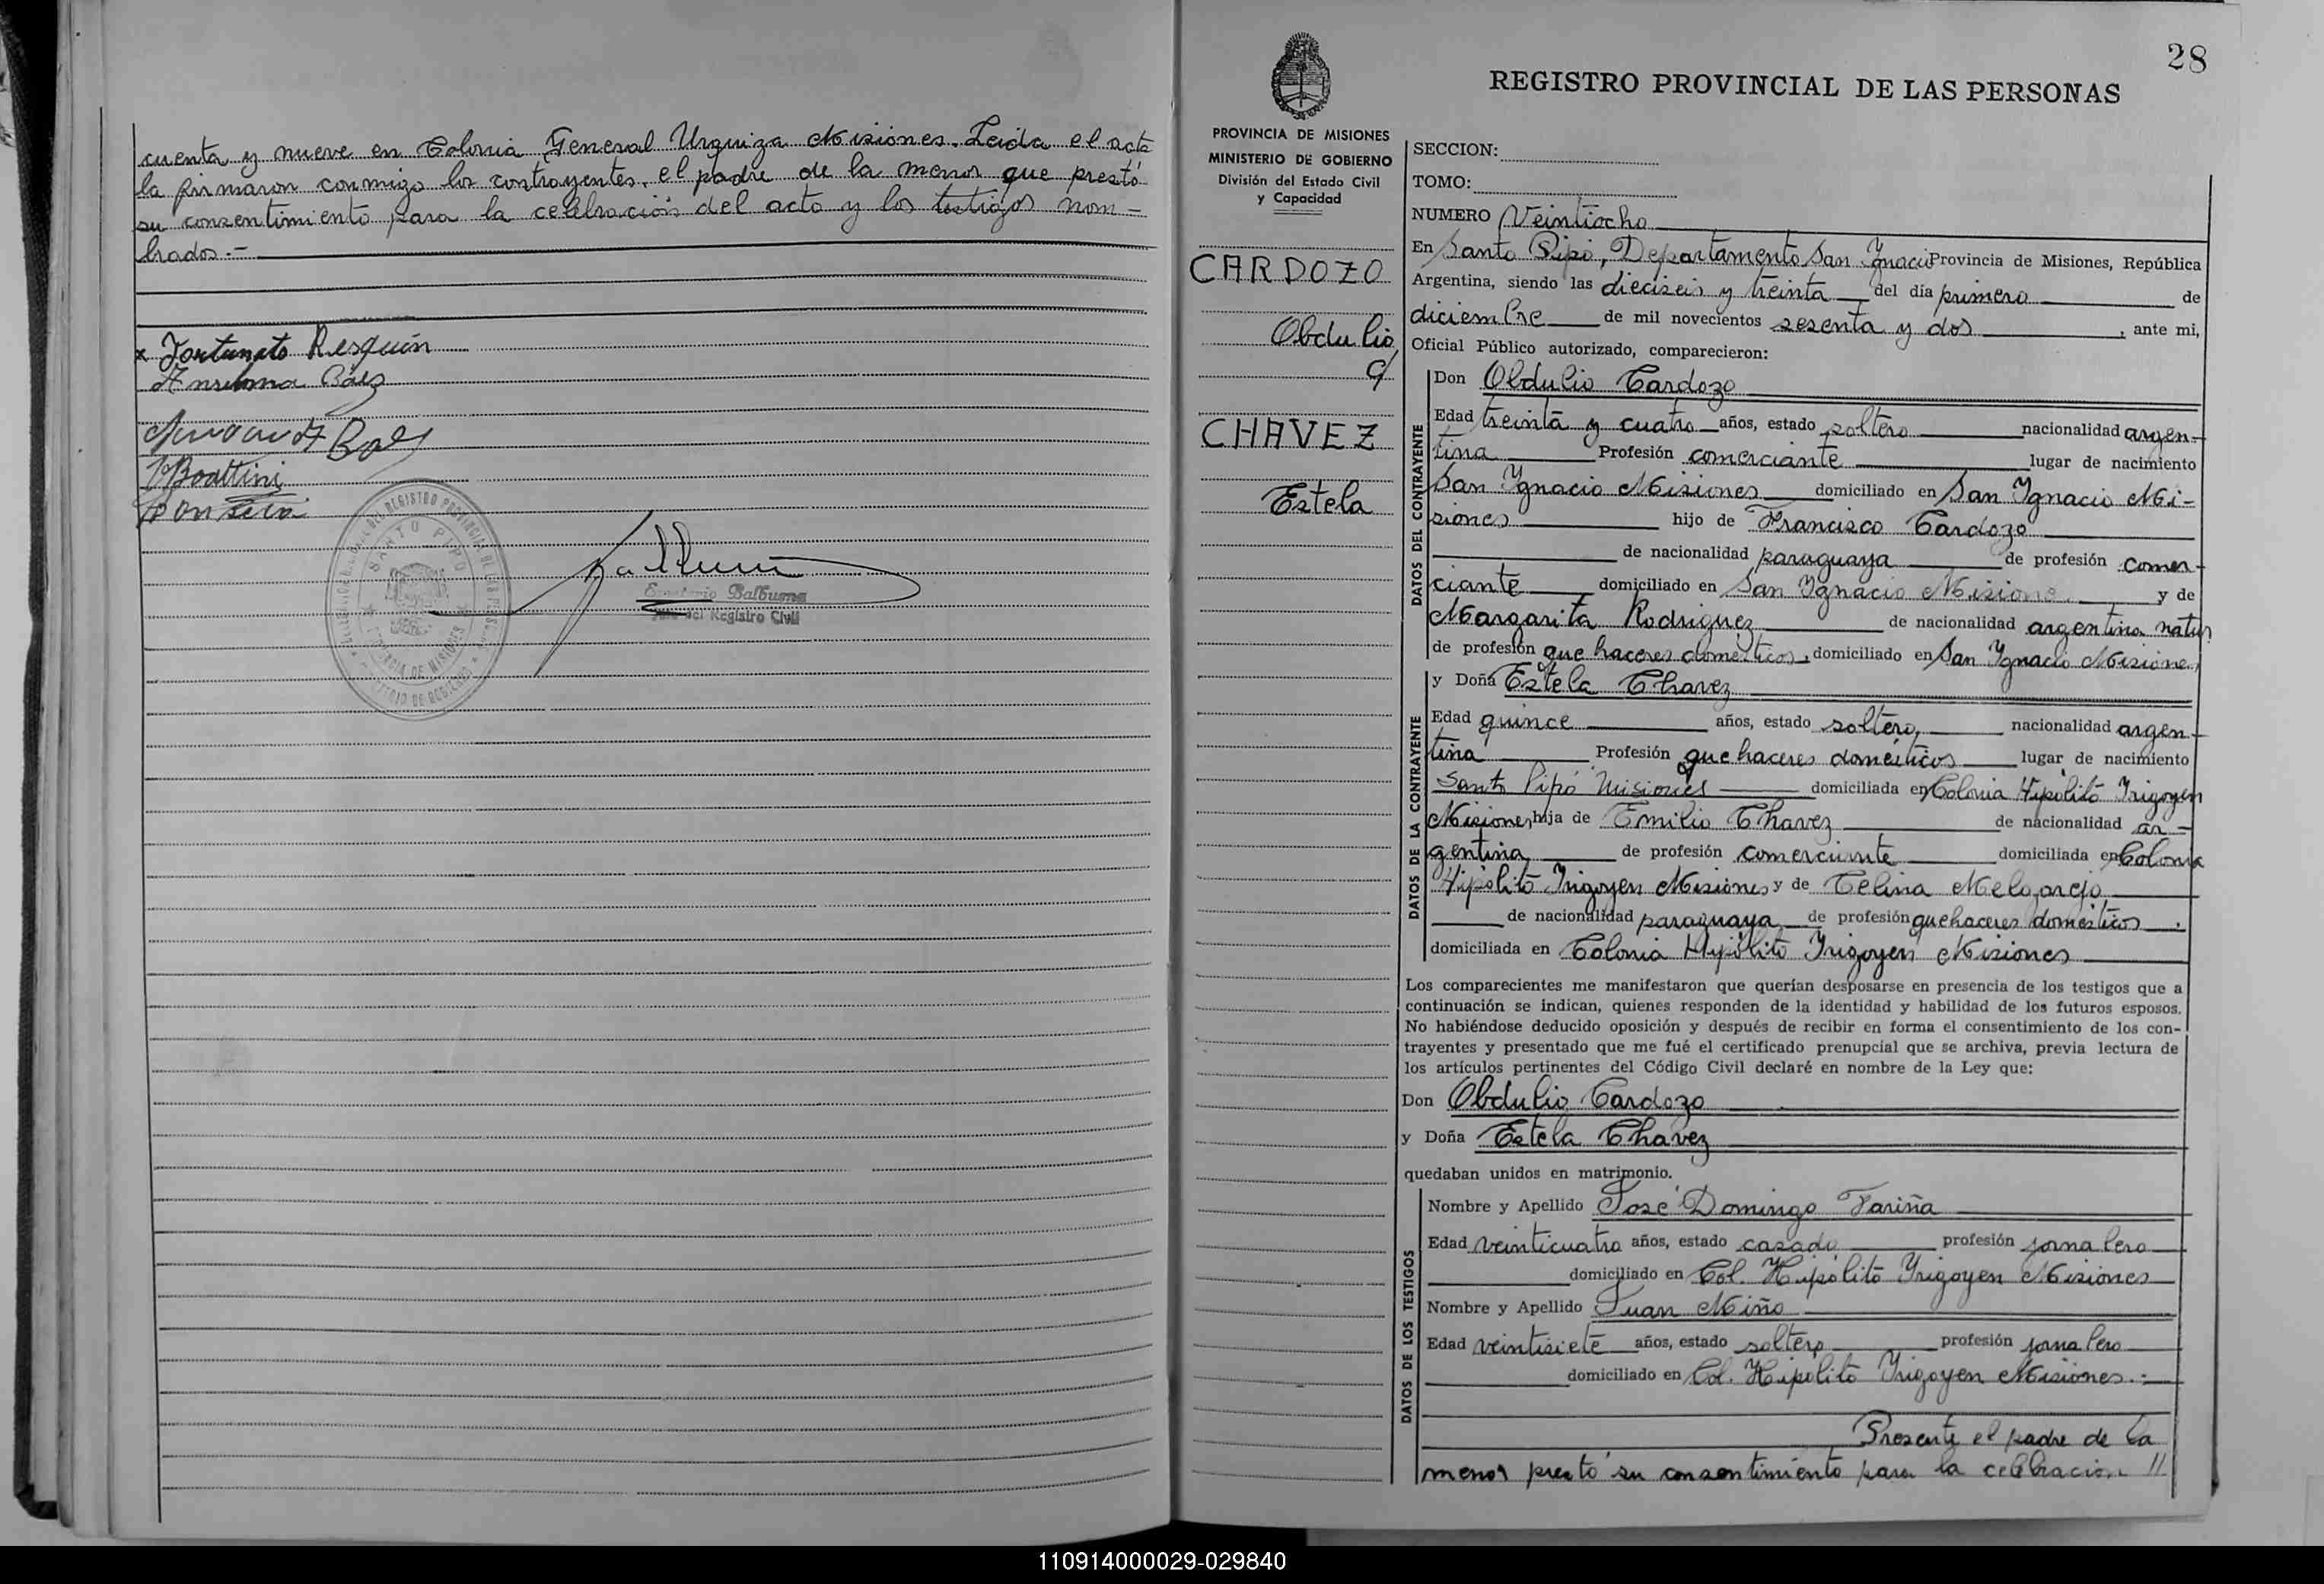 cuenta y nueve en Colonia General Urquiza Misiones. Leida el acta
la firmaron conmigo los contrayentes, el padre de la menor que prestó
su consentimiento para la celebración del acto y los testigos nom-
brados.-
x Fortunato Resquin
Anselma Báez
Boattini
SANTO PIPO
PROVINCIA DE MISIONES
Balbuena
del Registro Civil
28
REGISTRO PROVINCIAL DE LAS PERSONAS
PROVINCIA DE MISIONES
MINISTERIO DE GOBIERNO
División del Estado Civil
y Capacidad
CARDOZO
Obdulio
c/
CHAVEZ
Estela
SECCION:
TOMO:
NUMERO Veintiocho
En Santo Pipó, Departamento San Ygnacio Provincia de Misiones, República
Argentina, siendo las dieciseis y treinta del día primero de
diciembre de mil novecientos sesenta y dos, ante mi,
Oficial Público autorizado, comparecieron:
DATOS DEL CONTRAYENTE
Don Obdulio Cardozo
Edad treinta y cuatro años, estado soltero nacionalidad argen-
tina Profesión comerciante lugar de nacimiento
San Ygnacio Misiones domiciliado en San Ygnacio Mi-
siones hijo de Francisco Cardozo
de nacionalidad paraguaya de profesión comer-
ciante domiciliado en San Ygnacio Misiones y de
Margarita Rodriguez de nacionalidad argentina natur
de profesión que haceres domésticos, domiciliado en San Ygnacio Misiones,
DATOS DE LA CONTRAYENTE
y Doña Estela Chavez
Edad quince años, estado soltero, nacionalidad argen-
tina Profesión que haceres domésticos lugar de nacimiento
Santo Pipó Misiones domiciliada en Colonia Hipólito Irigoyen
Misiones hija de Emilio Chavez de nacionalidad ar-
gentina de profesión comerciante domiciliada en Colonia
Hipólito Irigoyen Misiones y de Celina Melgarejo
de nacionalidad paraguaya de profesión quehaceres domésticos
domiciliada en Colonia Hipólito Irigoyen Misiones
Los comparecientes me manifestaron que querían desposarse en presencia de los testigos que a
continuación se indican, quienes responden de la identidad y habilidad de los futuros esposos.
No habiéndose deducido oposición y después de recibir en forma el consentimiento de los con-
trayentes y presentado que me fué el certificado prenupcial que se archiva, previa lectura de
los artículos pertinentes del Código Civil declaré en nombre de la Ley que:
Don Obdulio Cardozo
y Doña Estela Chavez
quedaban unidos en matrimonio.
DATOS DE LOS TESTIGOS
Nombre y Apellido José Domingo Fariña
Edad veinticuatro años, estado casado profesión jornalero
domiciliado en Col. Hipólito Yrigoyen Misiones
Nombre y Apellido Juan Miño
Edad veintisiete años, estado soltero profesión jornalero
domiciliado en Col. Hipólito Yrigoyen Misiones.-
Presente el padre de la
menor prestó su consentimiento para la celebracion //
110914000029-029840